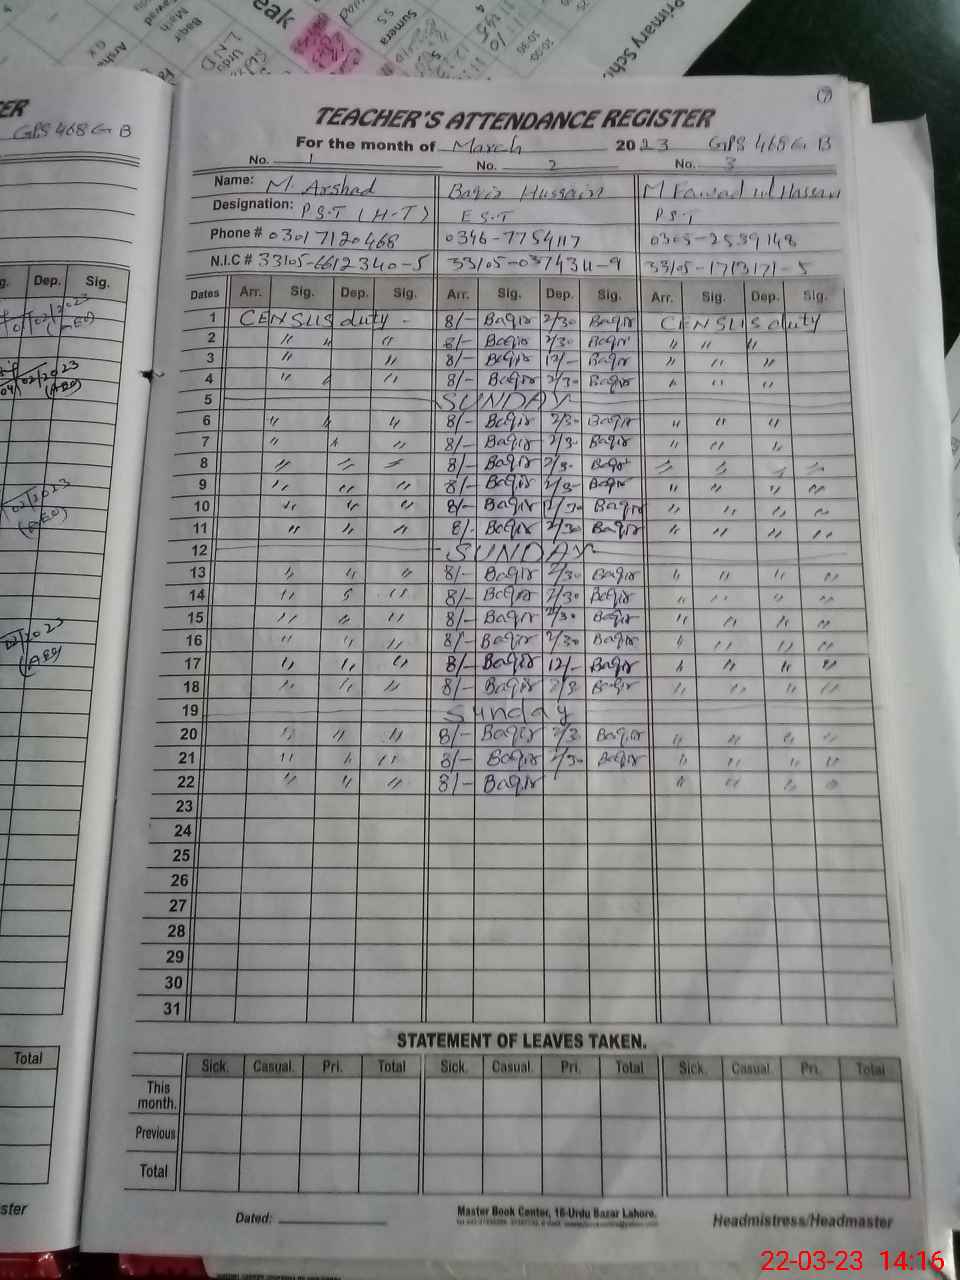 TEACHER'S ATTENDANCE REGISTER
For the month of March 2023 GPS 468 GB
No. 1 No. 2 No. 3
Name: M. Arshad Baqir Hussain M Fawad ul Hassan
Designation: P.S.T (H-T) E S.T P.S.T
Phone # 03017120468 0346-7754117 0305-2539148
N.I.C # 33105-6612340-5 33105-037431-9 33105-1713171-5
Dates Arr. Sig. Dep. Sig. Arr. Sig. Dep. Sig. Arr. Sig. Dep. Sig.
1 CENSUS duty - 8/- Baqir 2/30 Baqir CENSUS duty
2 " " " 8/- Baqir 2/30 Baqir " " "
3 " " 8/- Baqir 12/- Baqir " " "
4 " " " 8/- Baqir 2/30 Baqir " " "
5 SUNDAY
6 " " " 8/- Baqir 2/30 Baqir " " "
7 " " " 8/- Baqir 2/30 Baqir " " "
8 " " " 8/- Baqir 2/30 Baqir " " " "
9 " " " 8/- Baqir 2/30 Baqir " " " "
10 " " " 8/- Baqir 12/30 Baqir " " " "
11 " " " 8/- Baqir 2/30 Baqir " " " "
12 SUNDAY
13 " " " 8/- Baqir 2/30 Baqir " " " "
14 " " " 8/- Baqir 2/30 Baqir " " " "
15 " " " 8/- Baqir 2/30 Baqir " " " "
16 " " " 8/- Baqir 2/30 Baqir " " " "
17 " " " 8/- Baqir 12/- Baqir " " " "
18 " " " 8/- Baqir 2/3 Baqir " " " "
19 Sunday
20 " " " 8/- Baqir 2/3 Baqir " " " "
21 " " " 8/- Baqir 2/30 Baqir " " " "
22 " " " 8/- Baqir " " " "
23
24
25
26
27
28
29
30
31
STATEMENT OF LEAVES TAKEN.
Sick. Casual. Pri. Total Sick. Casual. Pri. Total Sick. Casual. Pri. Total
This month.
Previous
Total
Dated: Master Book Center, 16-Urdu Bazar Lahore. Headmistress/Headmaster
22-03-23 14:16
GPS 468 G B
Dep. Sig.
02/2023
(AEO)
02/2023
(AEO)
02/2023
(AEO)
02/2023
(AEO)
Total
Primary
Sumera
Urdu
Math
Baqir